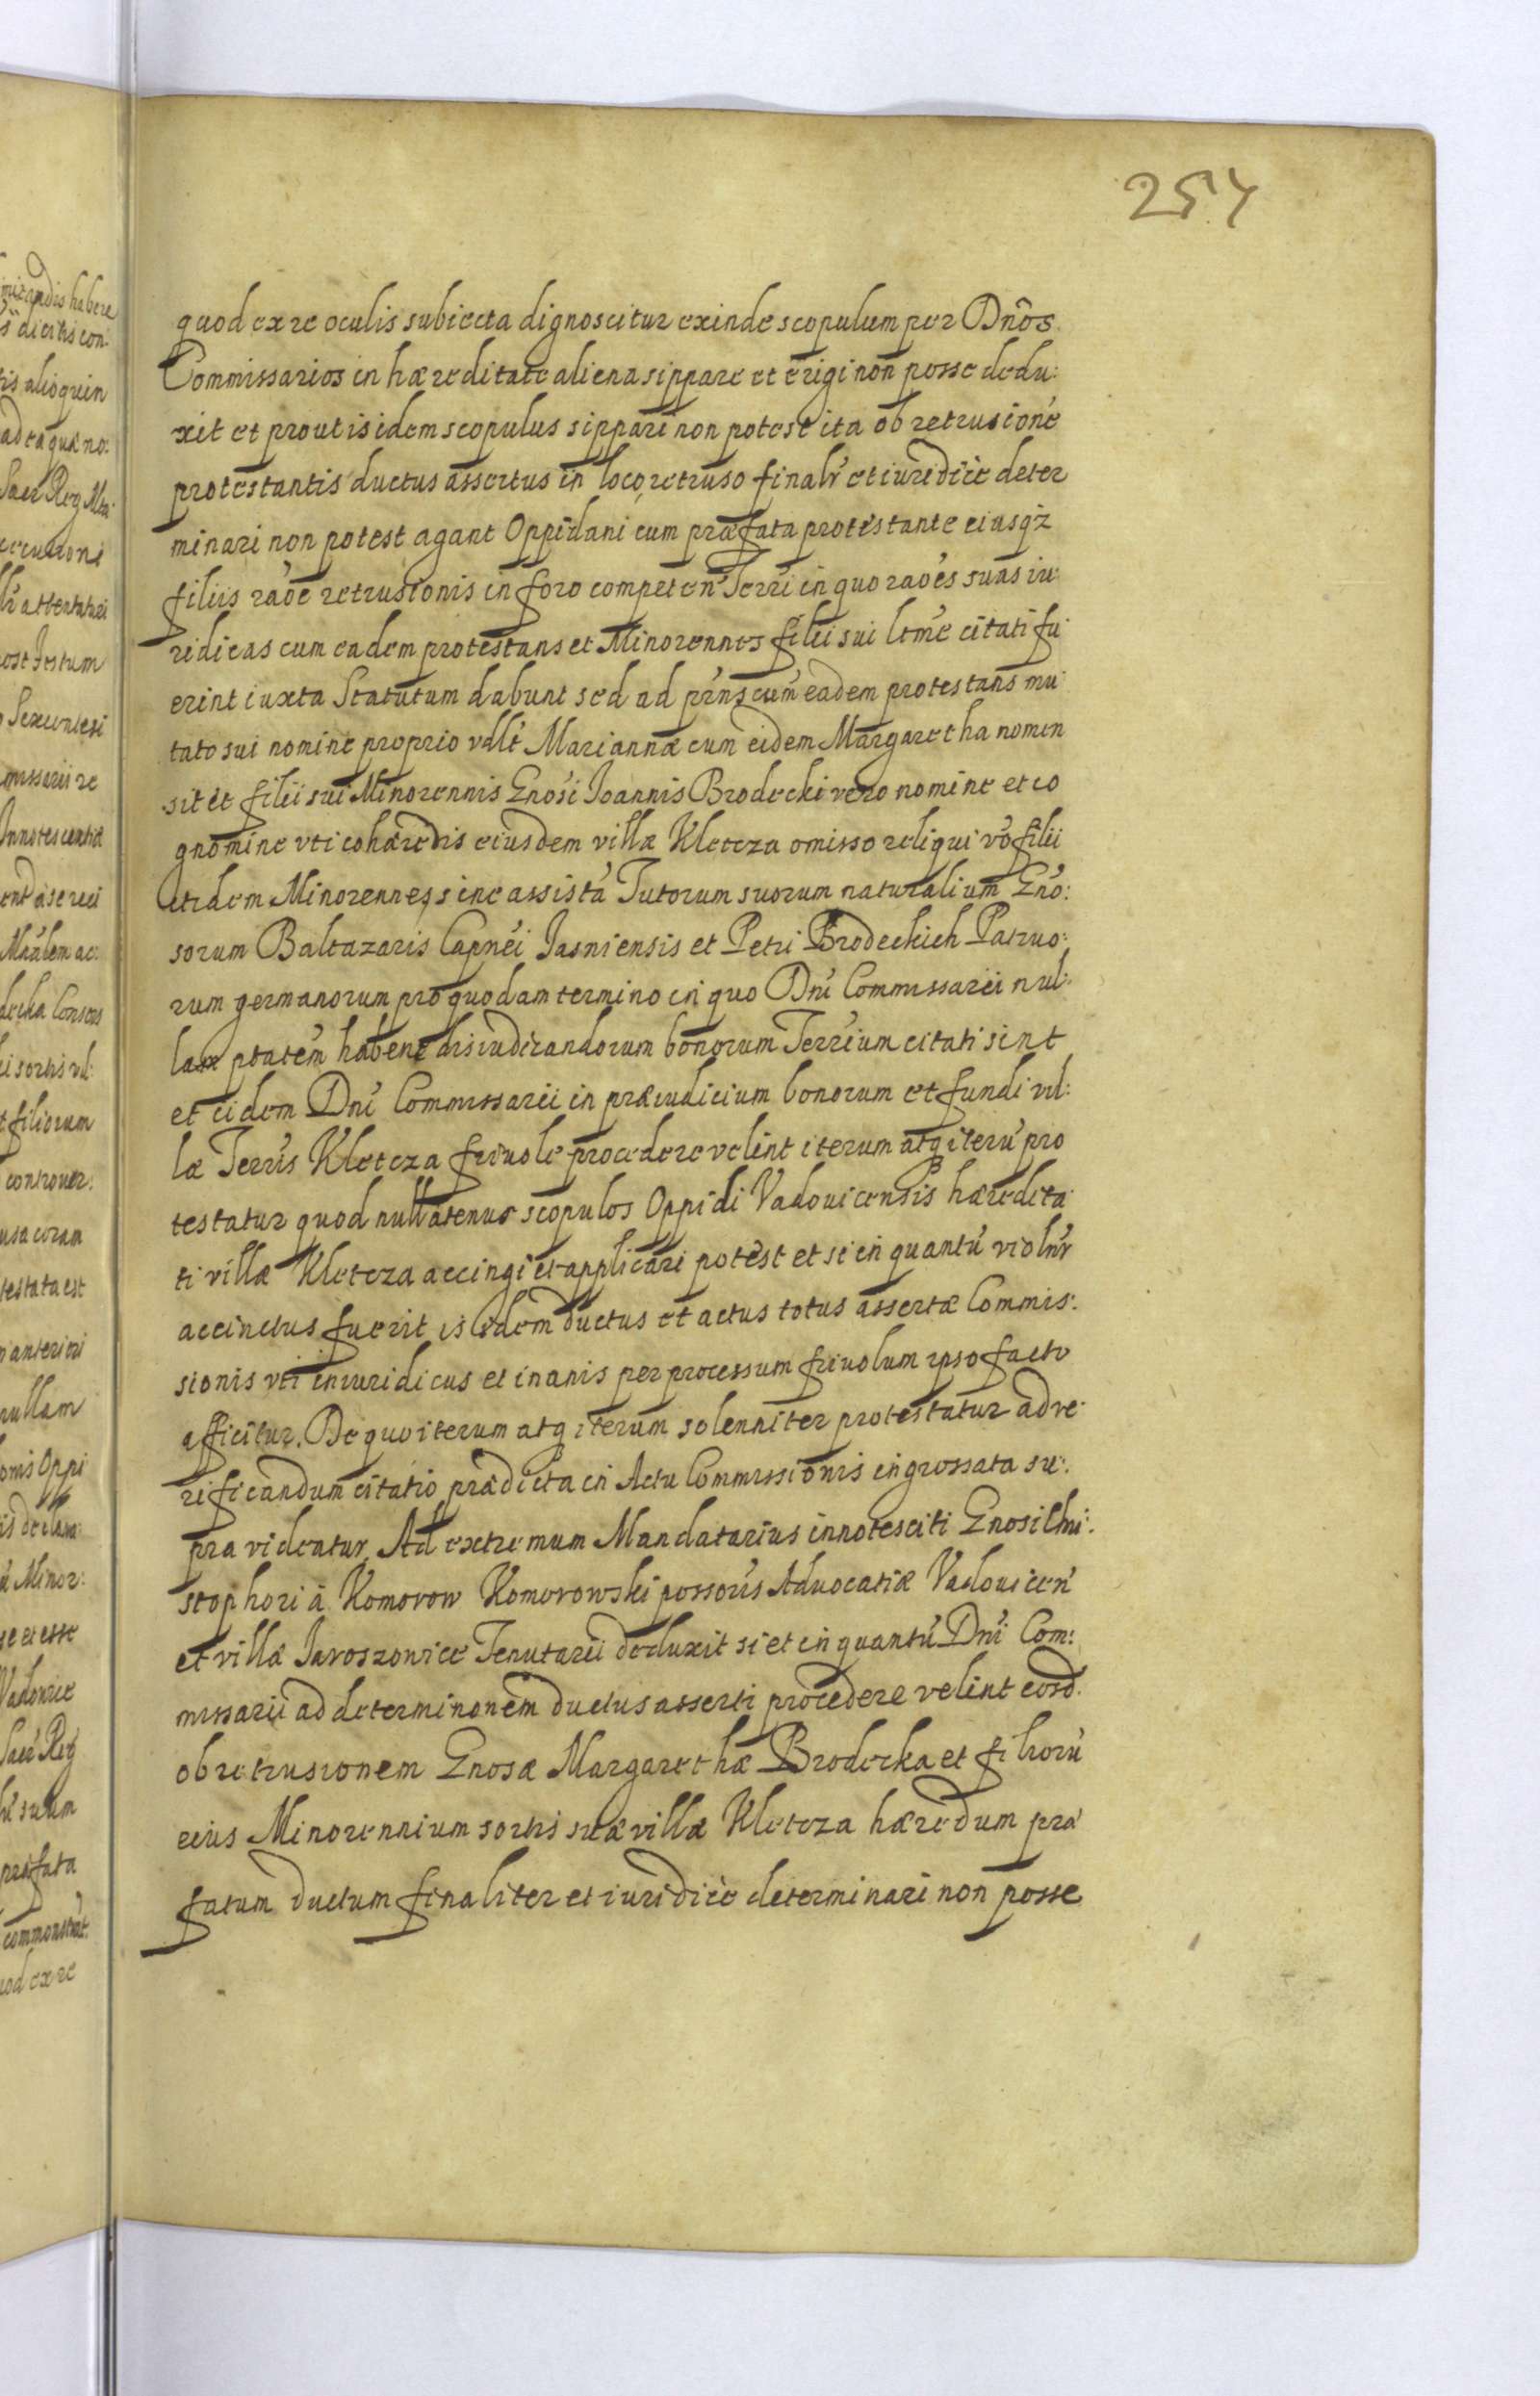 257
quod ex re oculis subiecta dignoscitur exinde scopulum per Dnos
Commissarios in hæreditate aliena sippare et erigi non posse dedu:
xit et prout is idem scopulus sippari non potest ita ob retrusione
protestantis ductus assertus in loco retruso finalr et iuridice deter
minari non potest agant Oppidani cum præfata protestante eiusqz
filiis raoe retrusionis in foro competen Terri in quo raoes suas iu
ridicas cum eadem protestans et Minorennes filii sui ltme citati fu
erint iuxta Statutum dabunt sed ad prns cum eadem protestans mu
tato sui nomine proprio vdlt Mariannæ cum eidem Margaretha nomen
sit et filii sui Minorennis Gnosi Joannis Brodecki vero nomine et co
gnomine vti cohæredis eiusdem villæ Kletcza omisso reliqui vo filii
itidem Minorennes sine assista Tutorum suorum naturalium Gno:
sorum Baltazaris Capnei Jasniensis et Petri Brodeckich Patruo:
rum germanorum pro quodam termino in quo Dni Commissarii nul:
lam ptatem habent disiudicandorum bonorum Terrium citati sint
et iidem Dni Commissarii in præiudicium bonorum et fundi vil:
læ Terris Kletcza friuole procedere velint iterum atq iteru pro
testatur quod nullatenus scopulos Oppidi Vadouicensis hæredita
ti villæ Kletcza accingi et applicari potest et si in quantu violnr
accinctus fuerit is idem ductus et actus totus assertæ Commis:
sionis vti iniuridicus et inanis per processum friuolum ipso facto
afficitur. De quo iterum atq iterum solenniter protestatur ad ve
rificandum citatio prædicta in Actu Commissionis ingrossata su:
pra videatur. Ad extremum Mandatarius innotesciti Gnosi Chri:
stophori à Komorow Komorowski possoris Aduocatiæ Vadouicen
et villæ Jaroszowice Tenutarii deduxit si et in quantu Dni Com:
missarii ad determinonem ductus asserti procedere velint eosd.
ob retrusionem Gnosæ Margarethæ Brodecka et filioru
eius Minorennium sortis suæ villæ Kletcza hæredum præ
fatum ductum finaliter et iuridice determinari non posse